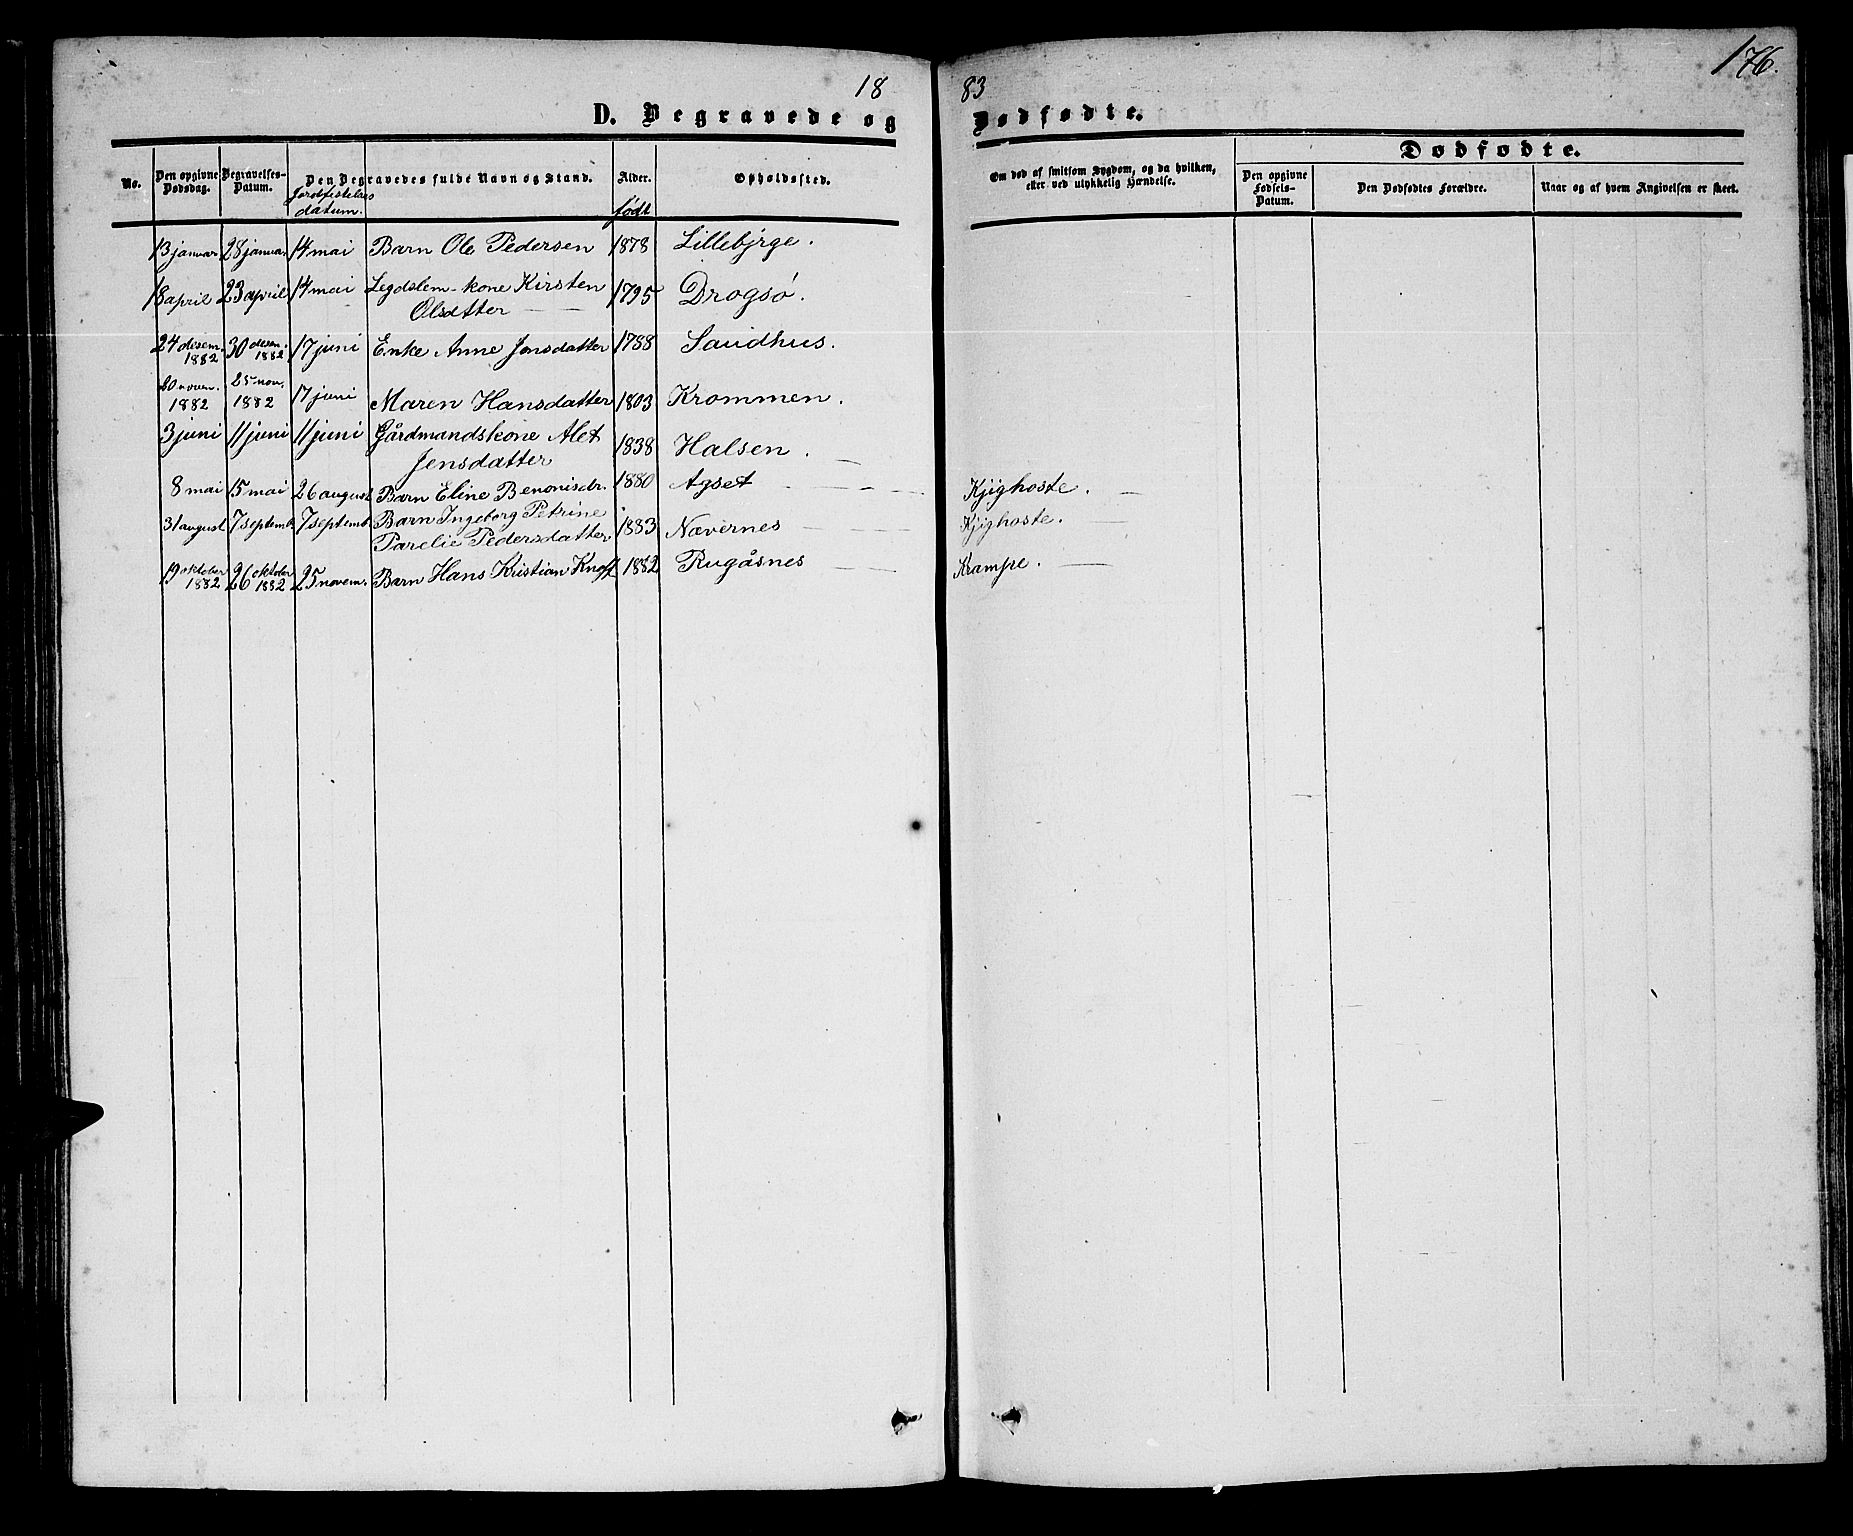 176.
18 83
D. Begravede og Dødfødte.
No. | Den opgivne Dødsdag. | Begravelses-Datum. | Jordfæstelses datum. | Den Begravedes fulde Navn og Stand. | Alder. født | Opholdssted. | Om død af smitsom Sygdom, og da hvilken, eller ved ulykkelig Hændelse. | Dødfødte.
Den opgivne Fødsels-Datum. | Den Dødfødtes Forældre. | Naar og af hvem Angivelsen er skeet.
13 januar | 28 januar | 14 mai | Barn Ole Pedersen | 1878 | Lillebjrge.
18 april | 23 april | 14 mai | Legdslem-kone Kirsten | 1795 | Drogsø.
Olsdatter
24 desem. 1882 | 30 desem. 1882 | 17 juni | Enke Anne Jonsdatter | 1788 | Sandhus.
20 novem. 1882 | 25 nov. 1882 | 17 juni | Maren Hansdatter | 1803 | Krommen.
3 juni | 11 juni | 11 juni | Gårdmandskone Alet | 1838 | Halsen.
Jensdatter
8 mai | 15 mai | 26 august | Barn Eline Benonisdr. | 1880 | Agset | Kjighoste.
31 august | 7 septemb. | 7 septemb. | Barn Ingeborg Petrine | 1883 | Nævernes | Kjighoste.
Parelie Pedersdatter
19 oktober 1882 | 26 oktober 1882 | 25 novem. | Barn Hans Kristian Knoff | 1882 | Rugåsnes | Krampe.